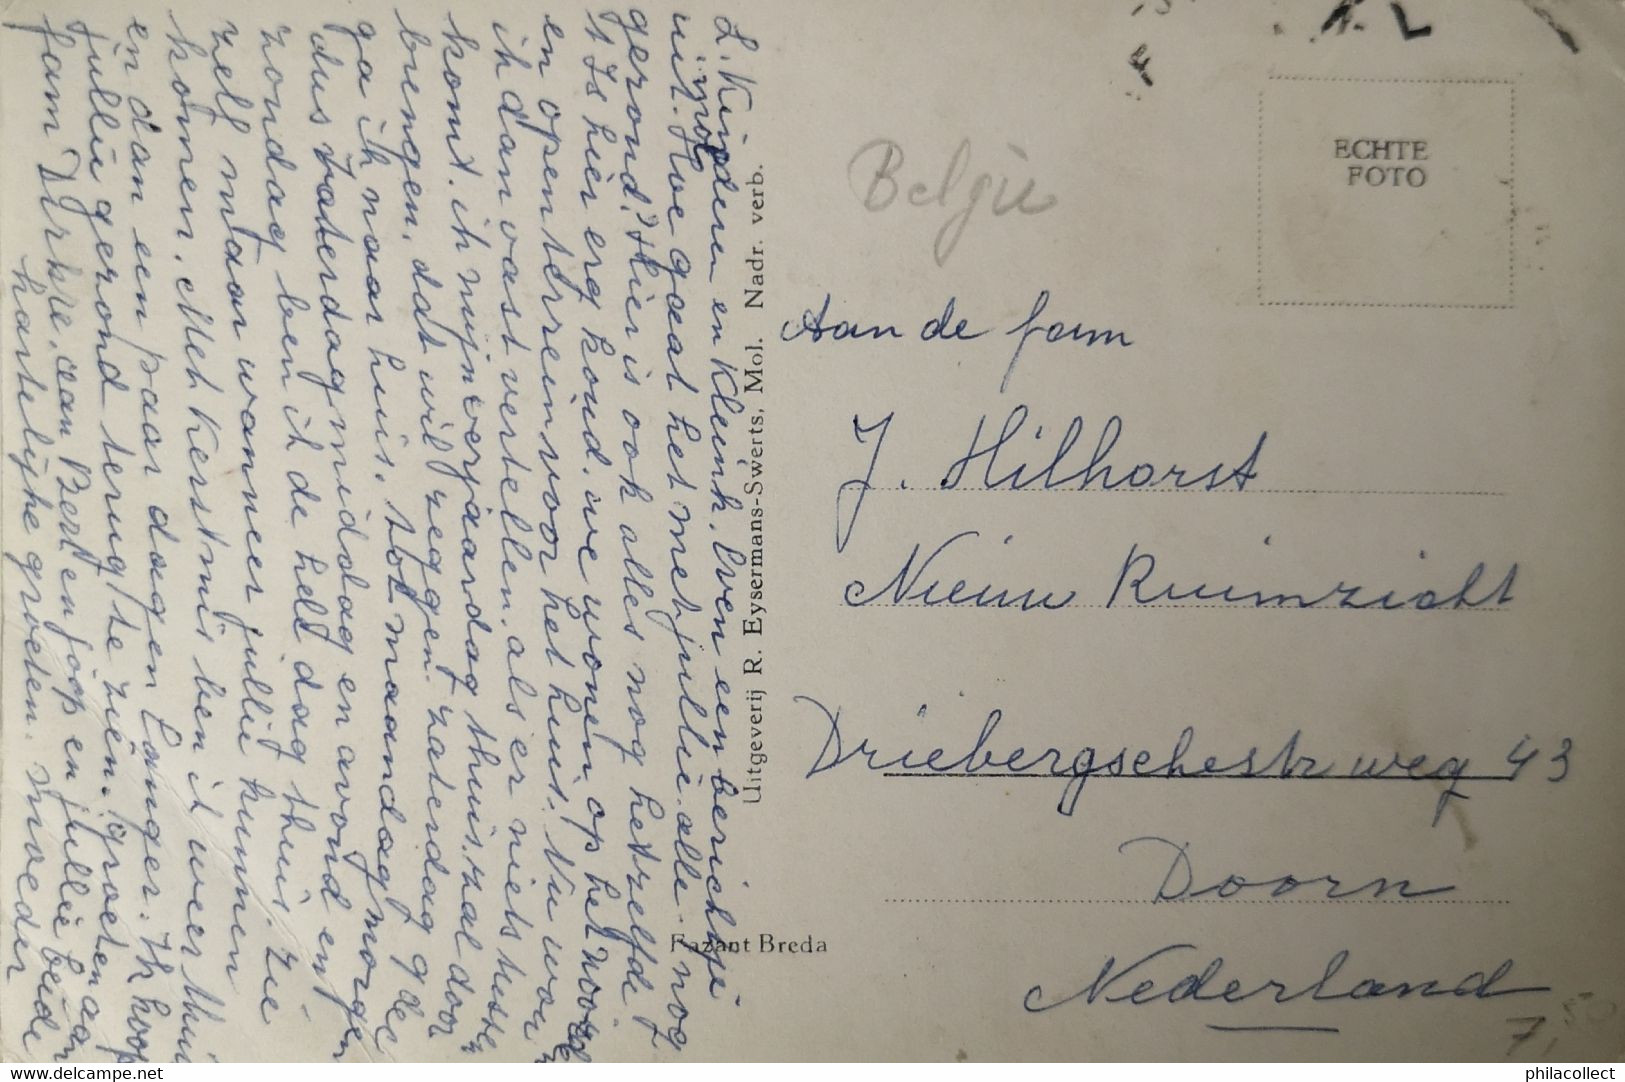 L. Kinderen en Kleink. Even een berichtje
uit Mol. Hoe gaat het met jullie alle. nog
gezond? Hier is ook alles nog hetzelfde
't Is hier erg koud. we wonen op het noorden
en open terrein voor het huis. Nu wou
ik dan vast vertellen. als er niets tussen
komt. ik mijn verjaardag thuis zal door
brengen. dat wil zeggen. zaterdag 9 dec
ga ik naar huis. tot maandagmorgen
dus zaterdagmiddag en avond en
zondag ben ik de hele dag thuis. zie
zelf maar wanneer jullie kunnen
komen. Met Kerstmis ben ik weer thuis
en dan een paar dagen langer. Ik hoop
jullie gezond terug te zien. groeten aan
fam Dirkze. aan Bert en joop en jullie beide
hartelijke groeten. moeder
Uitgeverij R. Eysermans-Swerts, Mol. Nadr. verb.
Fazant Breda
België
ECHTE
FOTO
Aan de fam
J. Hilhorst
Nieuw Ruimzicht
Driebergschestr weg 43
Doorn
Nederland
7,50
delcampe.net
philacollect